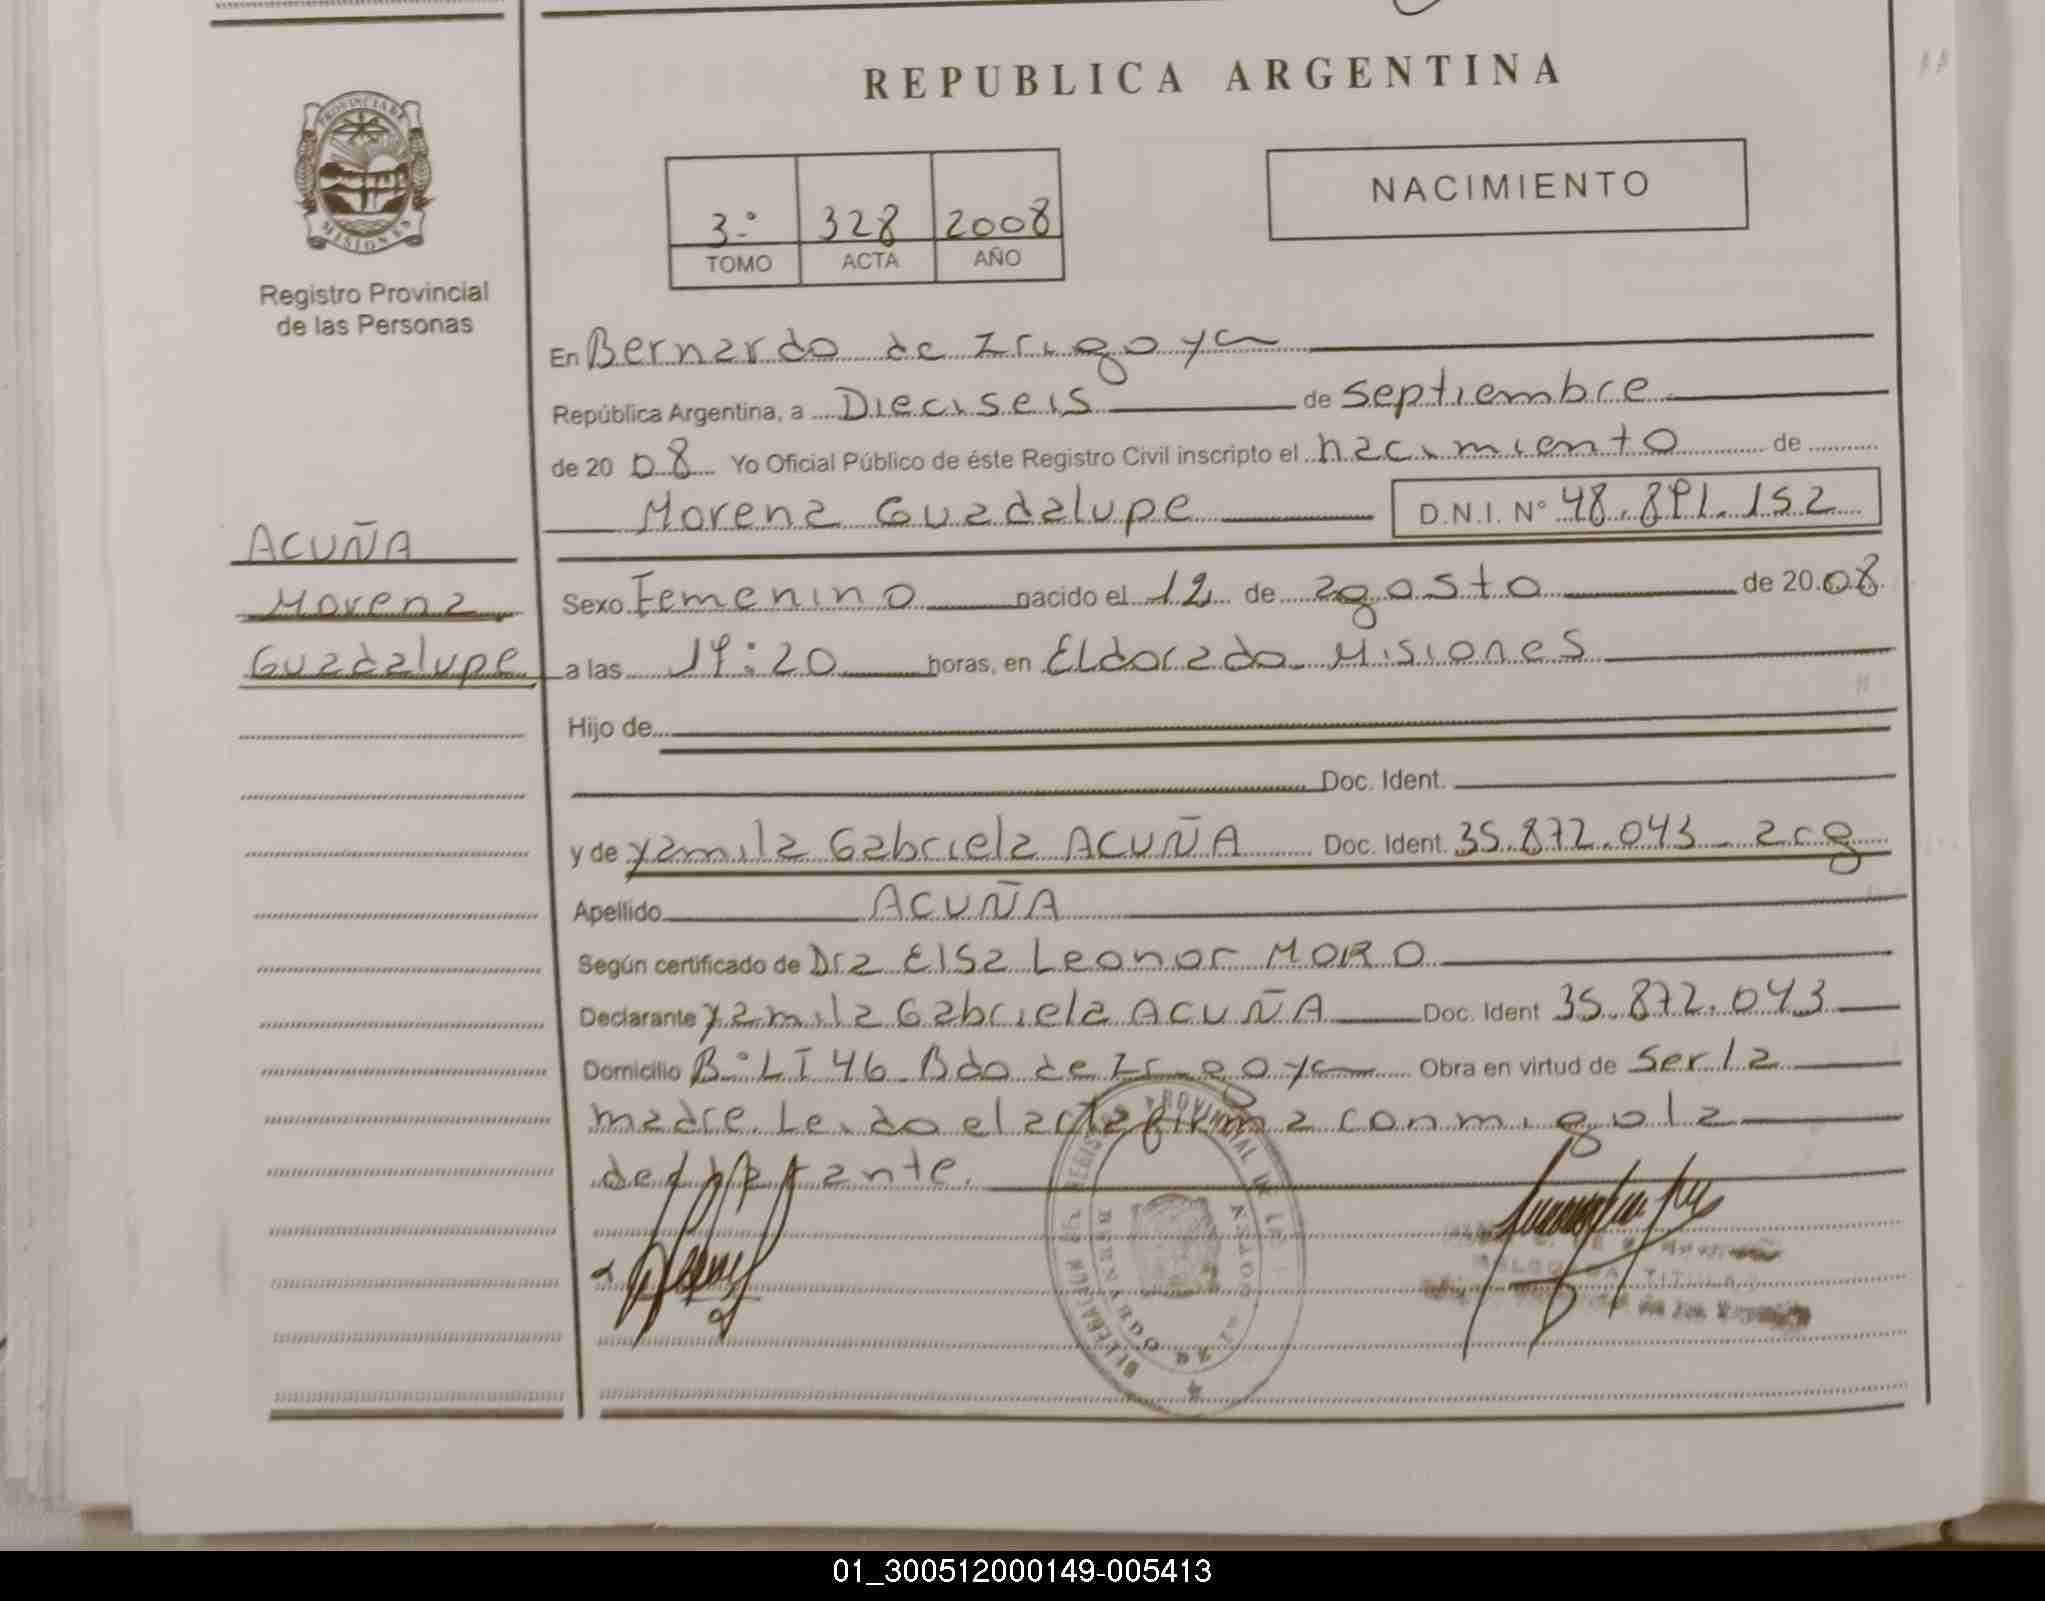 REPUBLICA ARGENTINA
PROVINCIA DE
MISIONES
Registro Provincial
de las Personas
3º 328 2008
TOMO ACTA AÑO
NACIMIENTO
En Bernardo de Irigoyen
República Argentina, a Dieciseis de septiembre
de 20 08 Yo Oficial Público de éste Registro Civil inscripto el nacimiento de
Morena Guadalupe D.N.I. Nº 48.891.152
ACUÑA
Morena
Guadalupe
Sexo Femenino nacido el 12 de agosto de 20 08
a las 19:20 horas, en Eldorado Misiones
Hijo de
Doc. Ident.
y de Yamila Gabriela ACUÑA Doc. Ident. 35.872.043 arg
Apellido ACUÑA
Según certificado de Dra Elsa Leonor MORO
Declarante Yamila Gabriela ACUÑA Doc. Ident 35.872.043
Domicilio Bº LT 46 Bdo de Irigoyen Obra en virtud de ser la
madre. Leido el acta firma conmigo la
declarante.
01_300512000149-005413